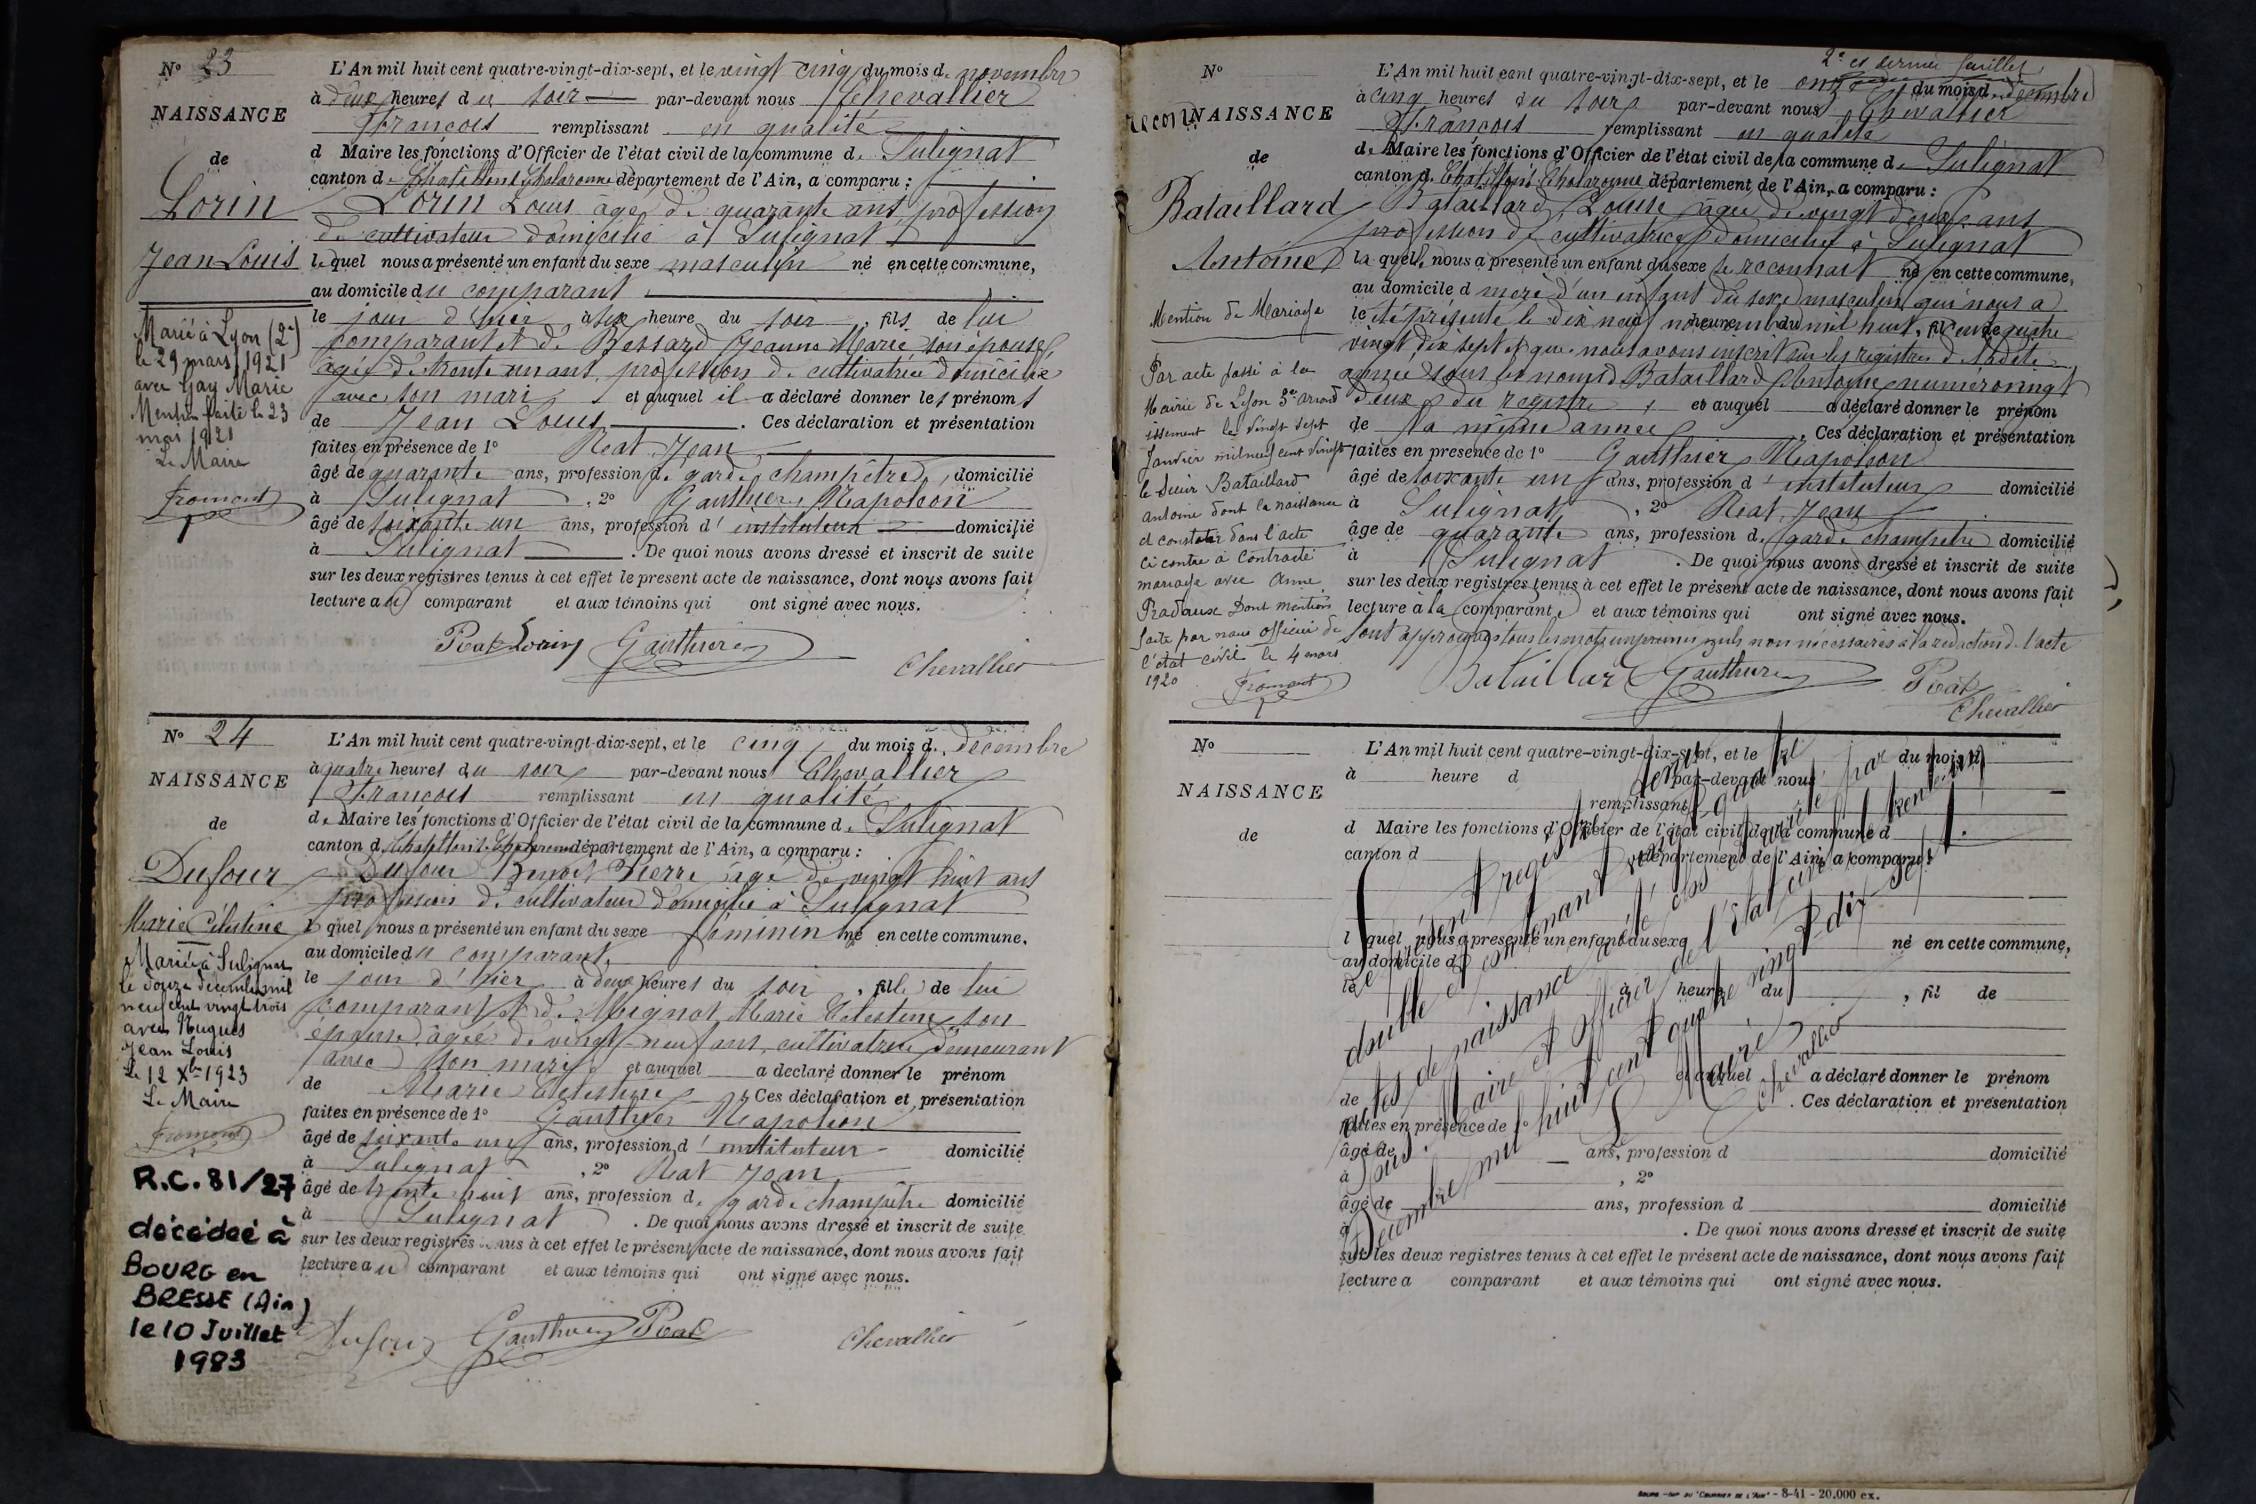 N° 23
NAISSANCE
de
Lorin
Jean Louis
Marié à Lyon (2e)
le 29 mars 1921
avec Gay Marie
Mention faite le 23
mai 1921
Le Maire
Froment
L'An mil huit cent quatre-vingt-dix-sept, et le vingt cinq du mois de novembre
à deux heures du soir par-devant nous Chevallier
François remplissant en qualité
de Maire les fonctions d'Officier de l'état civil de la commune de Sulignat
canton de Chatillon s Chalaronne département de l'Ain, a comparu :
Lorin Louis agé de quarante ans profession
de cultivateur domicilié à Sulignat
lequel nous a présenté un enfant du sexe masculin né en cette commune,
au domicile du comparant
le jour d'hier à six heure du soir, fils de lui
comparant et de Bessard Jeanne Marie son épouse
agée de trente un ans, profession de cultivatrice domiciliée
avec son mari et auquel il a déclaré donner les prénoms
de Jean Louis. Ces déclaration et présentation
faites en présence de 1° Réat Jean
âgé de quarante ans, profession de garde champêtre, domicilié
à Sulignat, 2° Gauthier Napoléon
âgé de soixante un ans, profession d'instituteur domicilié
à Sulignat. De quoi nous avons dressé et inscrit de suite
sur les deux registres tenus à cet effet le present acte de naissance, dont nous avons fait
lecture au comparant et aux témoins qui ont signé avec nous.
Réat Lorin Gauthier
Chevallier
N° 24
NAISSANCE
de
Dufour
Marie Célestine
Mariée à Sulignat
le douze décembre mil
neuf cent vingt trois
avec Nugues
Jean Louis
Le 12 Xbre 1923
Le Maire
Froment
R.C. 81/27
décédée à
BOURG en
BRESSE (Ain)
le 10 Juillet
1983
L'An mil huit cent quatre-vingt-dix-sept, et le cinq du mois de décembre
à quatre heures du soir par-devant nous Chevallier
François remplissant en qualité
de Maire les fonctions d'Officier de l'état civil de la commune de Sulignat
canton de Chatillon s Chalaronne département de l'Ain, a comparu :
Dufour Benoit Pierre âgé de vingt huit ans
profession de cultivateur domicilié à Sulignat
lequel nous a présenté un enfant du sexe féminin né en cette commune,
au domicile du comparant
le jour d'hier à deux heures du soir, fille de lui
comparant et de Mignot Marie Célestine son
épouse, agée de vingt-neuf ans, cultivatrice demeurant
avec son mari et auquel a déclaré donner le prénom
de Marie Célestine. Ces déclaration et présentation
faites en présence de 1° Gauthier Napoléon
âgé de soixante un ans, profession d'instituteur domicilié
à Sulignat, 2° Réat Jean
âgé de trente huit ans, profession de garde champêtre domicilié
à Sulignat. De quoi nous avons dressé et inscrit de suite
sur les deux registres tenus à cet effet le présent acte de naissance, dont nous avons fait
lecture au comparant et aux témoins qui ont signé avec nous.
Dufour Gauthier Réat
Chevallier
2e et dernier feuillet
N°
reconNAISSANCE
de
Bataillard
Antoine
Mention de Mariage
Par acte passé à la
Mairie de Lyon 3e arrond
issement le vingt sept
Janvier mil neuf cent vingt
le sieur Bataillard
Antoine dont la naissance
et constatée dans l'acte
ci contre à contracté
mariage avec Anne
Pradaux Dont mention
faite par nous officier de
l'état civil le 4 mars
1920
Froment
L'An mil huit cent quatre-vingt-dix-sept, et le onze du mois de décembre
à cinq heures du soir par-devant nous Chevallier
François remplissant en qualité
de Maire les fonctions d'Officier de l'état civil de la commune de Sulignat
canton de Chatillon s Chalaronne département de l'Ain, a comparu :
Bataillard Louise agée de vingt deux ans
profession de cultivatrice domiciliée à Sulignat
laquelle nous a présenté un enfant du sexe se reconnait né en cette commune,
au domicile d mère d'un enfant du sexe masculin qui nous a
le été présenté le dix neuf novembre mil huit cent quatre
vingt dix sept et que nous avons inscrit sur les registres de ladite
année sous les noms de Bataillard Antoine numéro vingt
deux du registre, et auquel a déclaré donner le prénom
de la même année. Ces déclaration et présentation
faites en présence de 1° Gauthier Napoléon
âgé de soixante un ans, profession d'instituteur domicilié
à Sulignat, 2° Réat Jean
âgé de quarante ans, profession de garde champêtre domicilié
à Sulignat. De quoi nous avons dressé et inscrit de suite
sur les deux registres tenus à cet effet le présent acte de naissance, dont nous avons fait
lecture à la comparante et aux témoins qui ont signé avec nous.
Sont approuvés tous les mots imprimés nuls non nécessaires à la rédaction de l'acte
Bataillard Gauthier Réat
Chevallier
N°
NAISSANCE
de
L'An mil huit cent quatre-vingt-dix-sept, et le du mois d
à heure d par-devant nous
remplissant
d Maire les fonctions d'Officier de l'état civil de la commune d
canton d département de l'Ain, a comparu :
l quel nous a présenté un enfant du sexe né en cette commune,
au domicile d
le à heure du, fil de
et auquel a déclaré donner le prénom
de. Ces déclaration et présentation
faites en présence de 1°
âgé de ans, profession d domicilié
à, 2°
âgé de ans, profession d domicilié
à. De quoi nous avons dressé et inscrit de suite
sur les deux registres tenus à cet effet le présent acte de naissance, dont nous avons fait
lecture a comparant et aux témoins qui ont signé avec nous.
Le présent registre tenu
double et contenant vingt quatre
actes de naissance a été clos et arrêté par
nous. Maire et officier de l'état civil le trente un
Décembre mil huit cent quatre vingt dix sept.
Le Maire
Chevallier
BOURG. - IMP. DU "COURRIER DE L'AIN" - 8-41 - 20.000 ex.